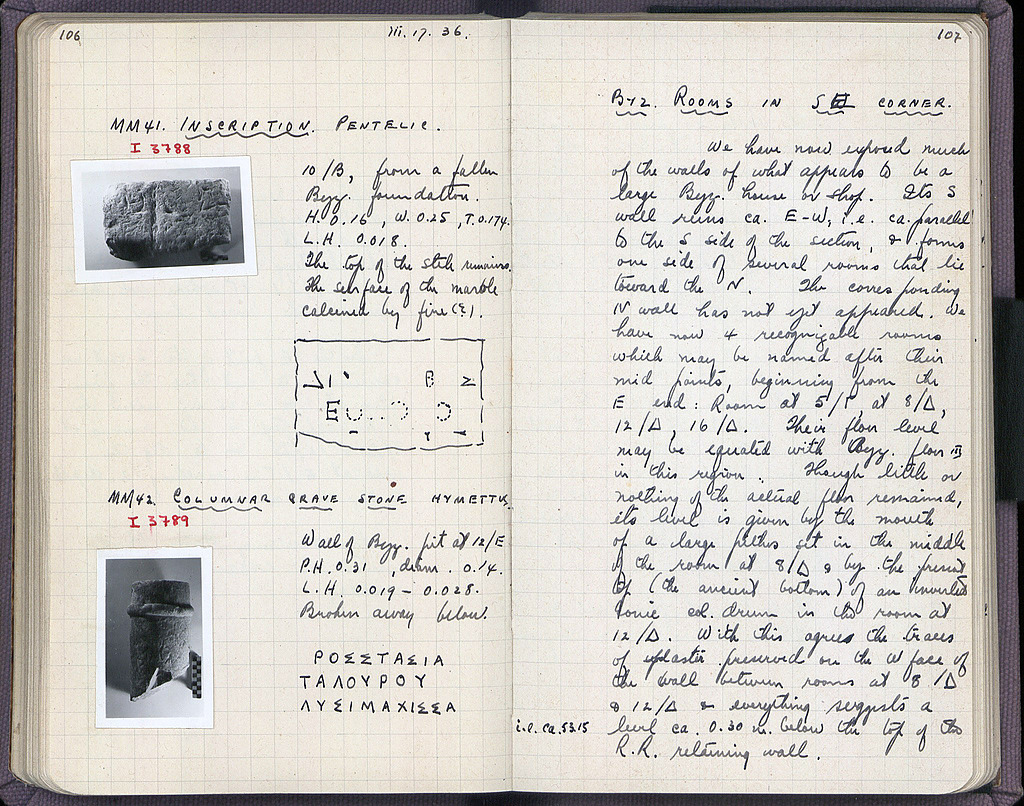 106
III. 17. 36.
MM41. INSCRIPTION. PENTELIC.
I 3788
10/B, from a fallen
Byz. foundation.
H. 0.16, W. 0.25, T. 0.174.
L.H. 0.018.
The top of the stele remains.
The surface of the marble
calcined by fire (?).
MM42. COLUMNAR GRAVE STONE HYMETTUS.
I 3789
Wall of Byz. pit at 12/E
P.H. 0.31, diam. 0.14.
L.H. 0.019 – 0.028.
Broken away below.
ΡΟΣΣΤΑΣΙΑ
ΤΑΛΟΥΡΟΥ
ΛΥΣΙΜΑΧΙΣΣΑ
107
BYZ. ROOMS IN SE CORNER.
We have now exposed much
of the walls of what appears to be a
large Byz. house or shop. Its S
wall runs ca. E–W, i.e. ca. parallel
to the S side of the section, & forms
one side of several rooms that lie
toward the N. The corresponding
N wall has not yet appeared. We
have now 4 recognizable rooms
which may be named after their
mid points, beginning from the
E end: Room at 5/Γ, at 8/Δ,
12/Δ, 16/Δ. Their floor level
may be equated with Byz. floor III
in this region. Though little or
nothing of the actual floor remained,
its level is given by the mouth
of a large pithos set in the middle
of the room at 8/Δ & by the present
top (the ancient bottom) of an inverted
Ionic col. drum in the room at
12/Δ. With this agree the traces
of plaster preserved on the W face of
the wall between rooms at 8/Δ
& 12/Δ & everything suggests a
i.e. ca. 53.15
level ca. 0.30 m. below the top of the
R.R. retaining wall.